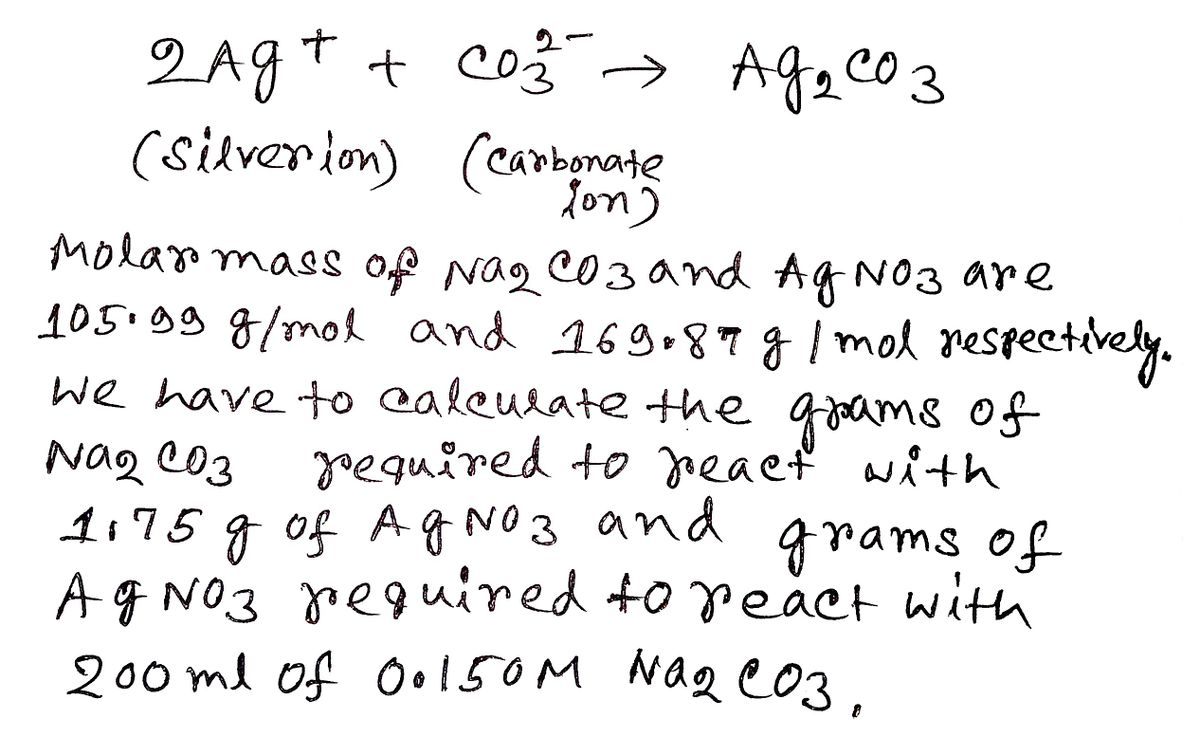 2Ag⁺ + CO₃²⁻ → Ag₂CO₃
(silver ion) (carbonate
ion)
Molar mass of Na₂CO₃ and AgNO₃ are
105.99 g/mol and 169.87 g/mol respectively.
We have to calculate the grams of
Na₂CO₃ required to react with
1.75 g of AgNO₃ and grams of
AgNO₃ required to react with
200 ml of 0.150M Na₂CO₃.